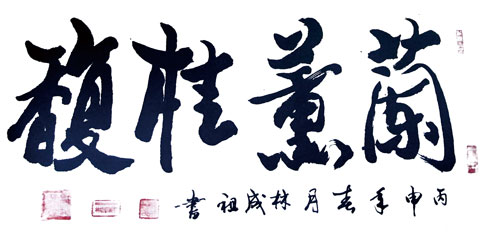 蘭薰桂馥
丙申年春月林成祖書